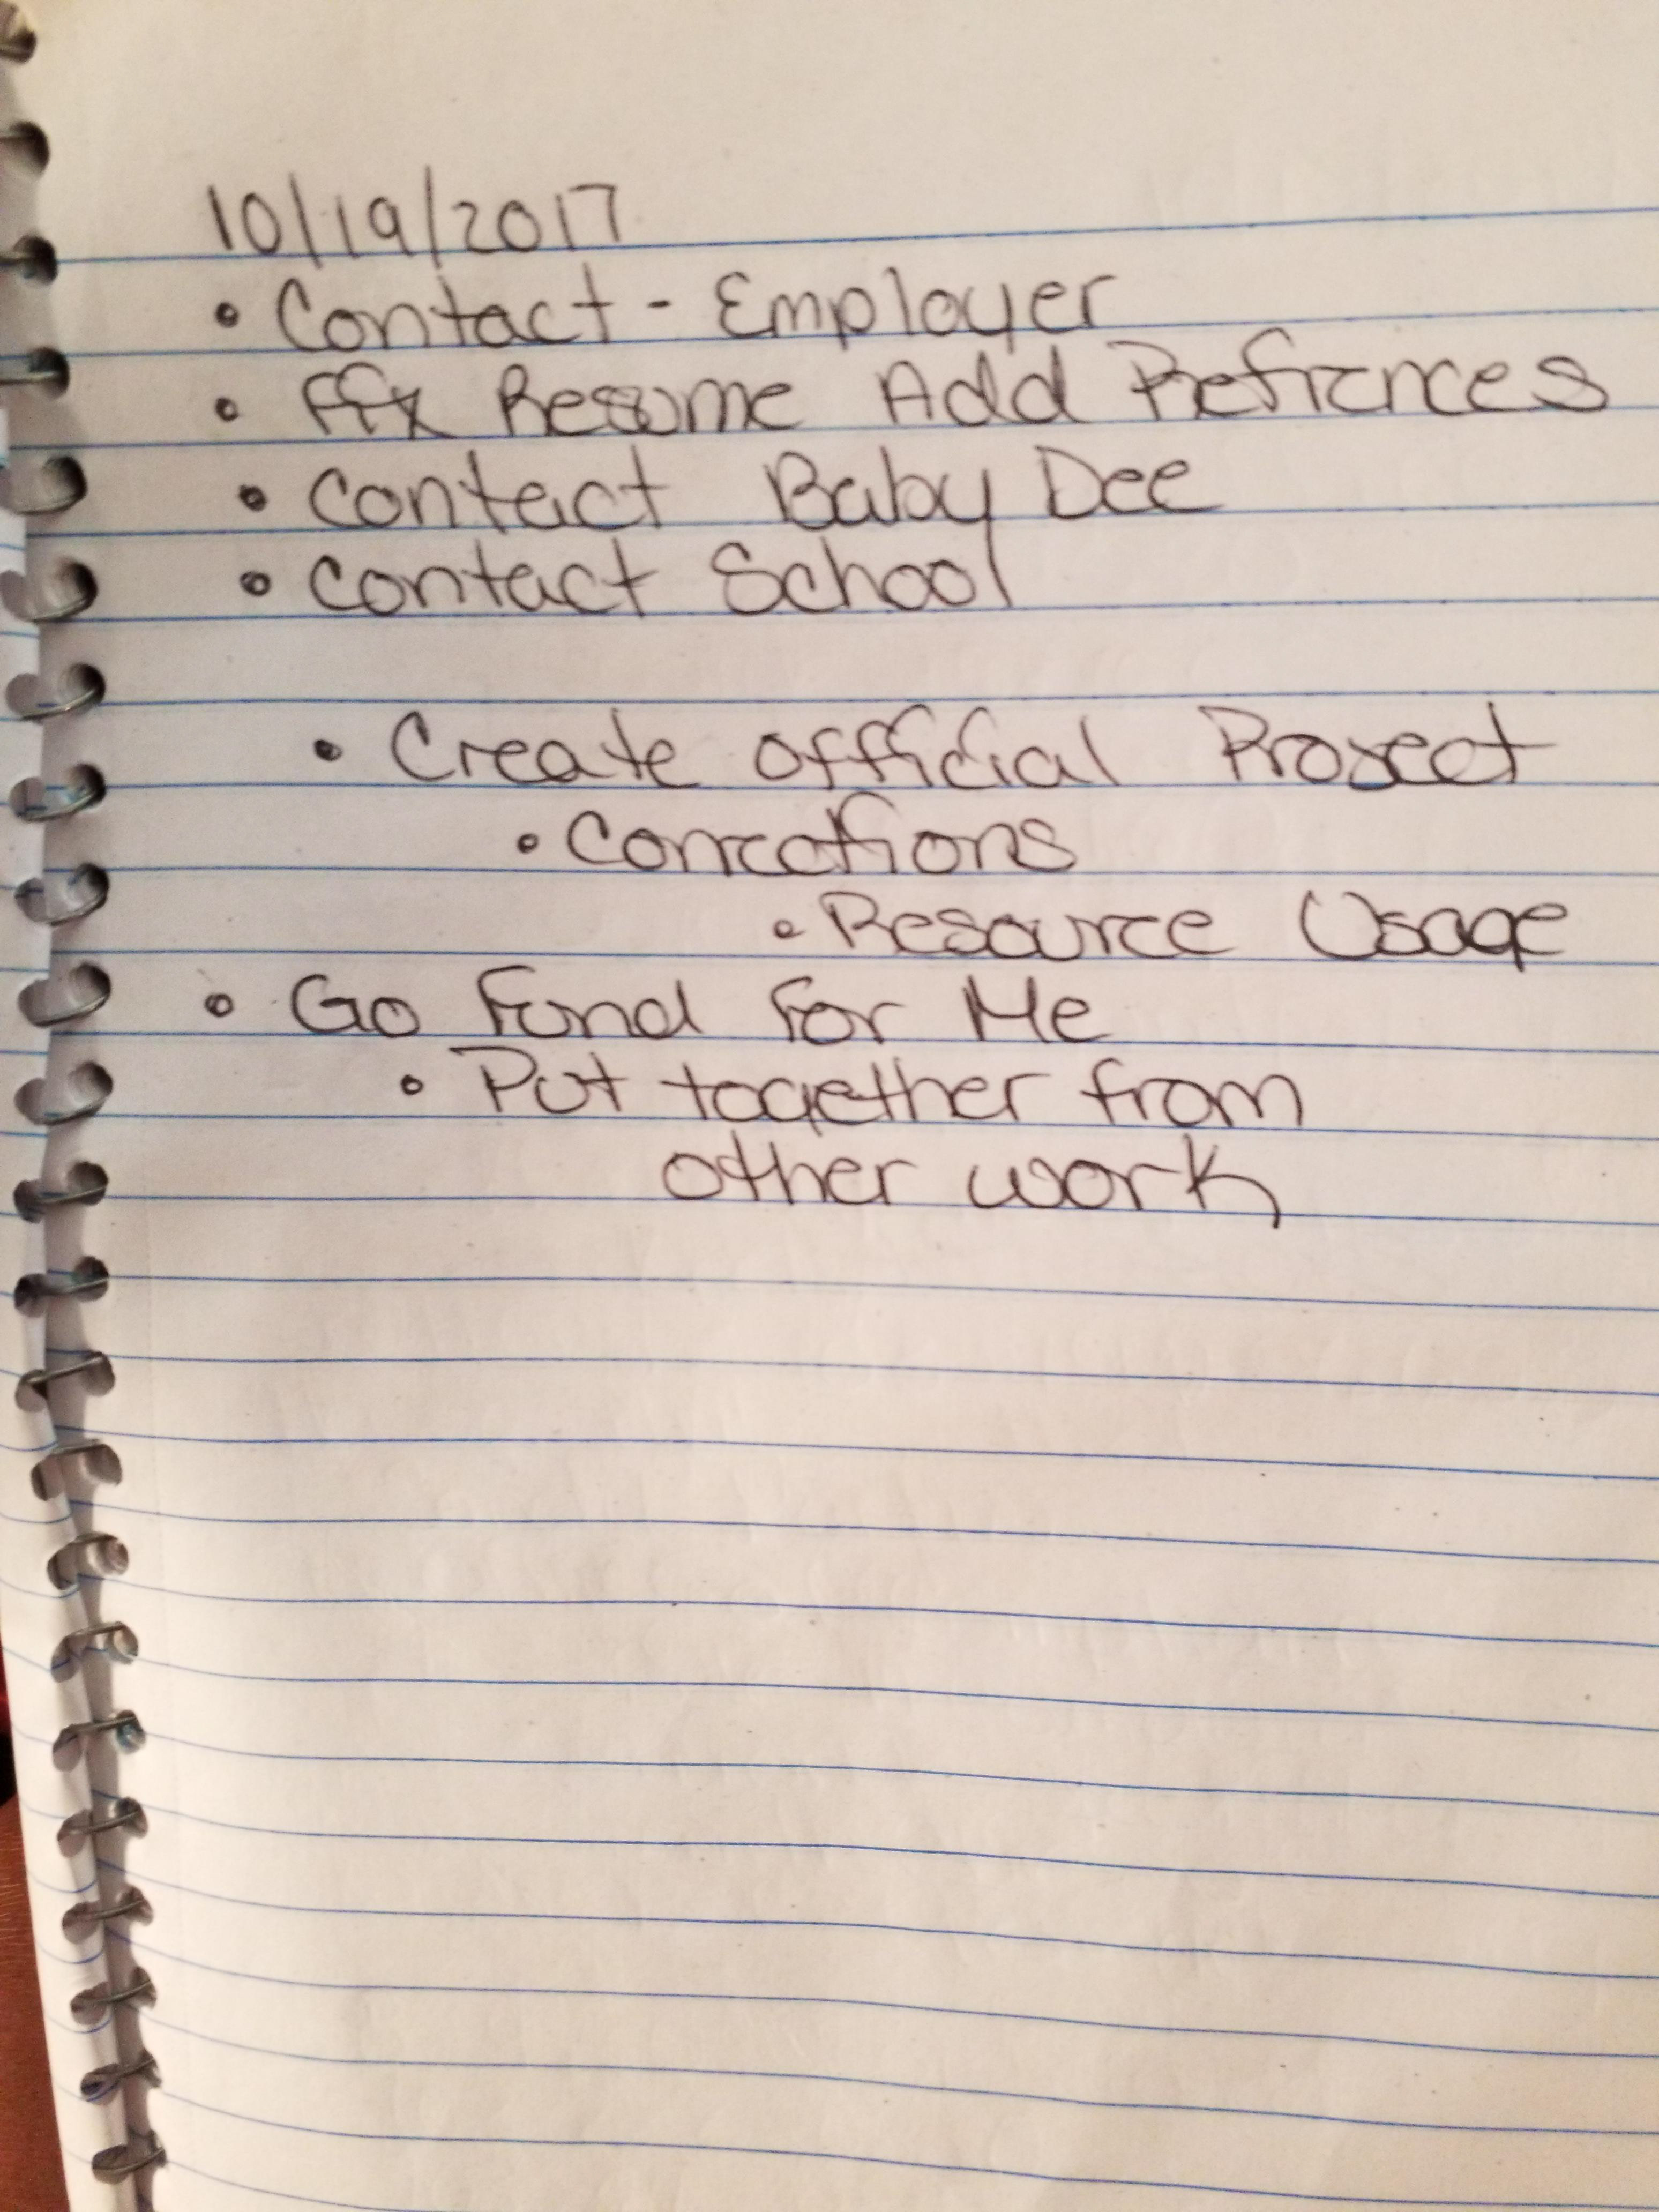 10/19/2017
• Contact - Employer
• Fix Resume Add Refrences
• Contact Baby Dee
• Contact School
• Create official Project
• Conections
• Resource Usage
• Go Fund For Me
• Put together from
other work